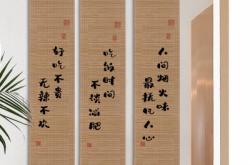 人间烟火味
最抚凡人心
吃饭时间
不谈减肥
好吃不贵
无辣不欢